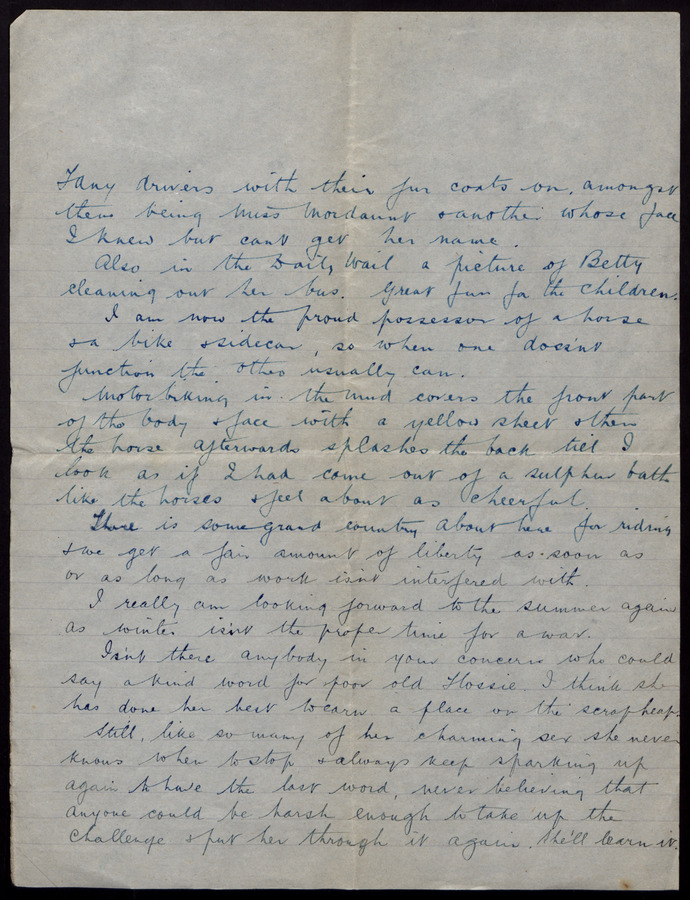 Fany drivers with their fur coats on, amongst
them being Miss Mordaunt & another whose face
I knew but cant get her name.
Also in the Daily Mail a picture of Betty
cleaning out her bus. Great fun for the children.
I am now the proud possessor of a horse
& a bike & sidecar, so when one doesn't
function the other usually can.
Motorbiking in the mud covers the front part
of the body & face with a yellow sheet & then
the horse afterwards splashes the back till I
look as if I had come out of a sulphur bath
like the horses & feel about as cheerful.
There is some grand country about here for riding
& we get a fair amount of liberty as soon as
or as long as work isn't interfered with.
I really am looking forward to the summer again
as winter isn't the proper time for a war.
Isn't there anybody in your concern who could
say a kind word for poor old Flossie. I think she
has done her best to earn a place on the scrapheap.
Still, like so many of her charming sex she never
knows when to stop & always keep sparking up
again to have the last word, never believing that
anyone could be harsh enough to take up the
challenge & put her through it again. She'll learn it.